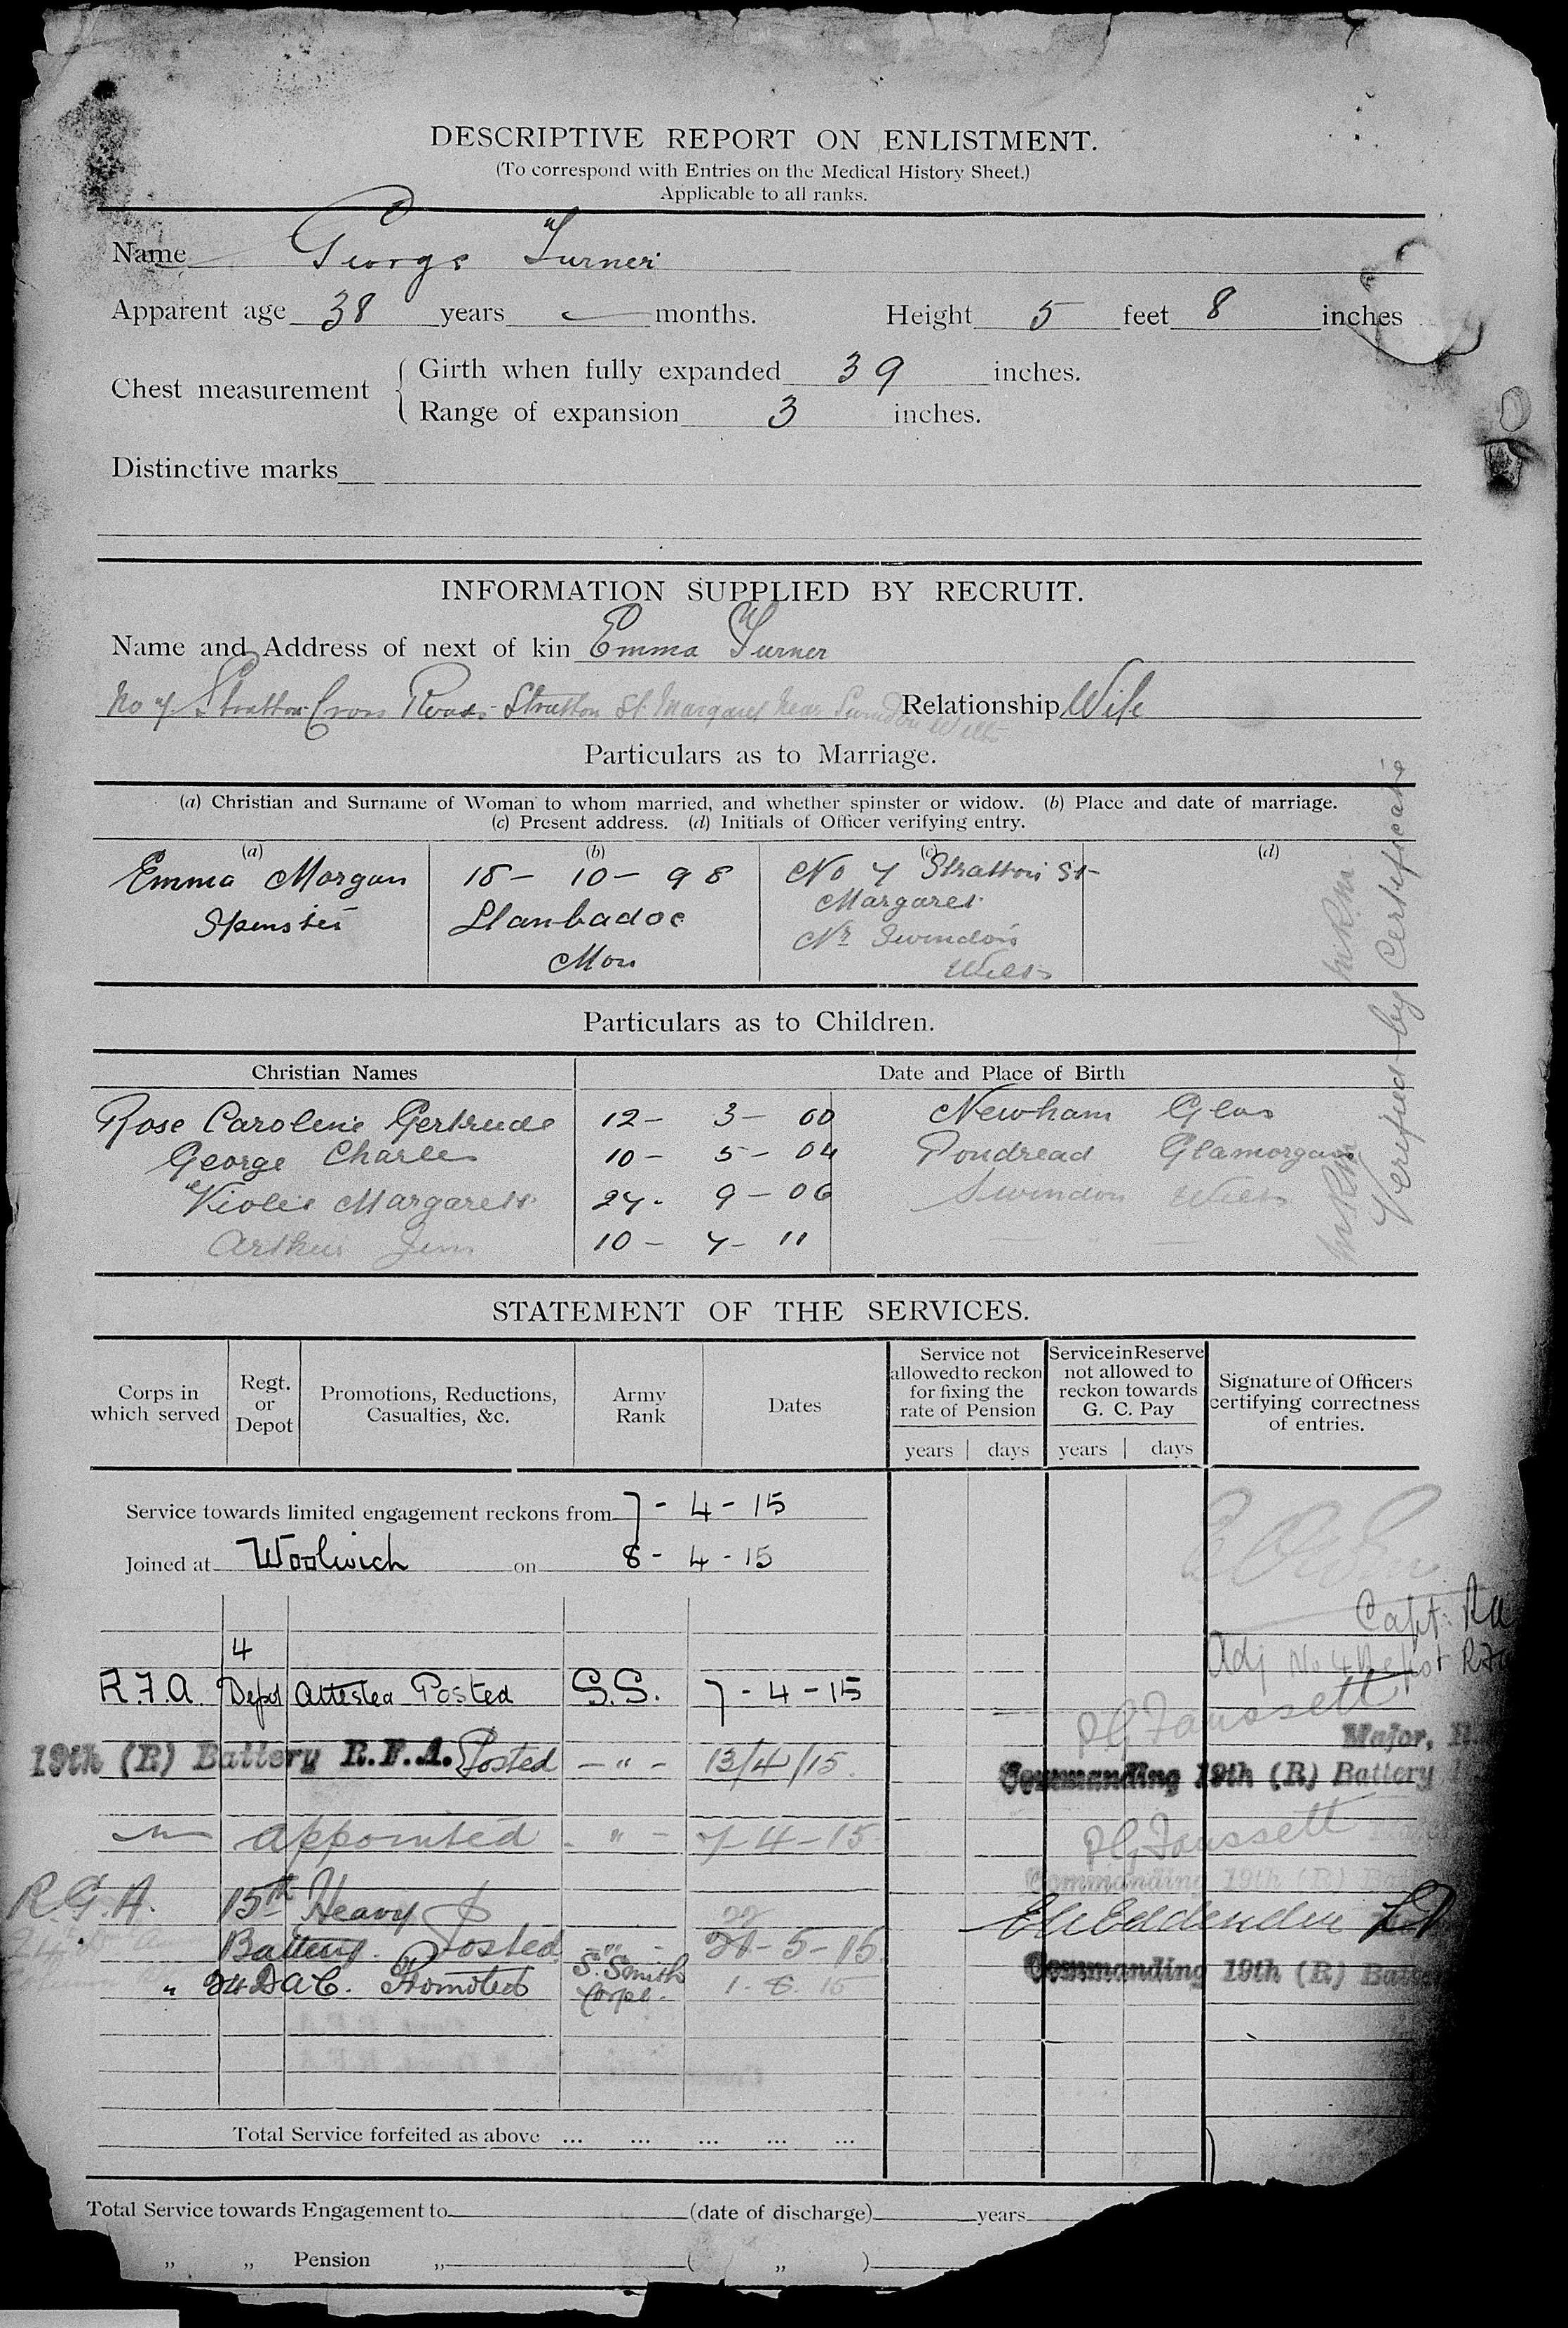 DESCRIPTIVE REPORT ON ENLISTMENT.
(To correspond with Entries on the Medical History Sheet.)
Applicable to all ranks.
Name George Turner
Apparent age 38 years — months. Height 5 feet 8 inches
Chest measurement { Girth when fully expanded 39 inches.
Range of expansion 3 inches.
Distinctive marks
INFORMATION SUPPLIED BY RECRUIT.
Name and Address of next of kin Emma Turner
No 7 Stratton Cross Roads Stratton St Margaret Near Swindon Wilts Relationship Wife
Particulars as to Marriage.
(a) Christian and Surname of Woman to whom married, and whether spinster or widow. (b) Place and date of marriage.
(c) Present address. (d) Initials of Officer verifying entry.
(a) (b) (c) (d)
Emma Morgan 18 - 10 - 98 No 7 Stratton St
Spinster Llanbadoc Margaret
Mon Nr Swindon
Wilts
Verified by Certificate
Particulars as to Children.
Christian Names Date and Place of Birth
Rose Caroline Gertrude 12 - 3 - 00 Newnham Glos
George Charles 10 - 5 - 04 Glamorgan
Violet Margaret 27 - 9 - 06 Swindon Wilts
Arthur Jim 10 - 7 - 11
STATEMENT OF THE SERVICES.
Corps in which served Regt. or Depot Promotions, Reductions, Casualties, &c. Army Rank Dates Service not allowed to reckon for fixing the rate of Pension Service in Reserve not allowed to reckon towards G. C. Pay Signature of Officers certifying correctness of entries.
years days years days
Service towards limited engagement reckons from 7 - 4 - 15
Joined at Woolwich on 8 - 4 - 15
Capt: RA
Adj No 4 Depot RFA
4
R.F.A. Depot Attested Posted S.S. 7 - 4 - 15
P G Faussett
Major, R.
19th (R) Battery R.F.A. Posted — " — 13/4/15.
Commanding 19th (R) Battery
appointed - " - 7-4-15
P G Faussett
Commanding 19th (R) Bat
R.G.A. 15th Heavy 22
Battery. Posted " 21 - 5 - 15
Lt
Commanding 19th (R) Batte
" 24 D A C. Promoted S. Smith Corpl. 1. 8. 15
Total Service forfeited as above ... ... ... ... ...
Total Service towards Engagement to (date of discharge) years
„ „ Pension „ ( „ )